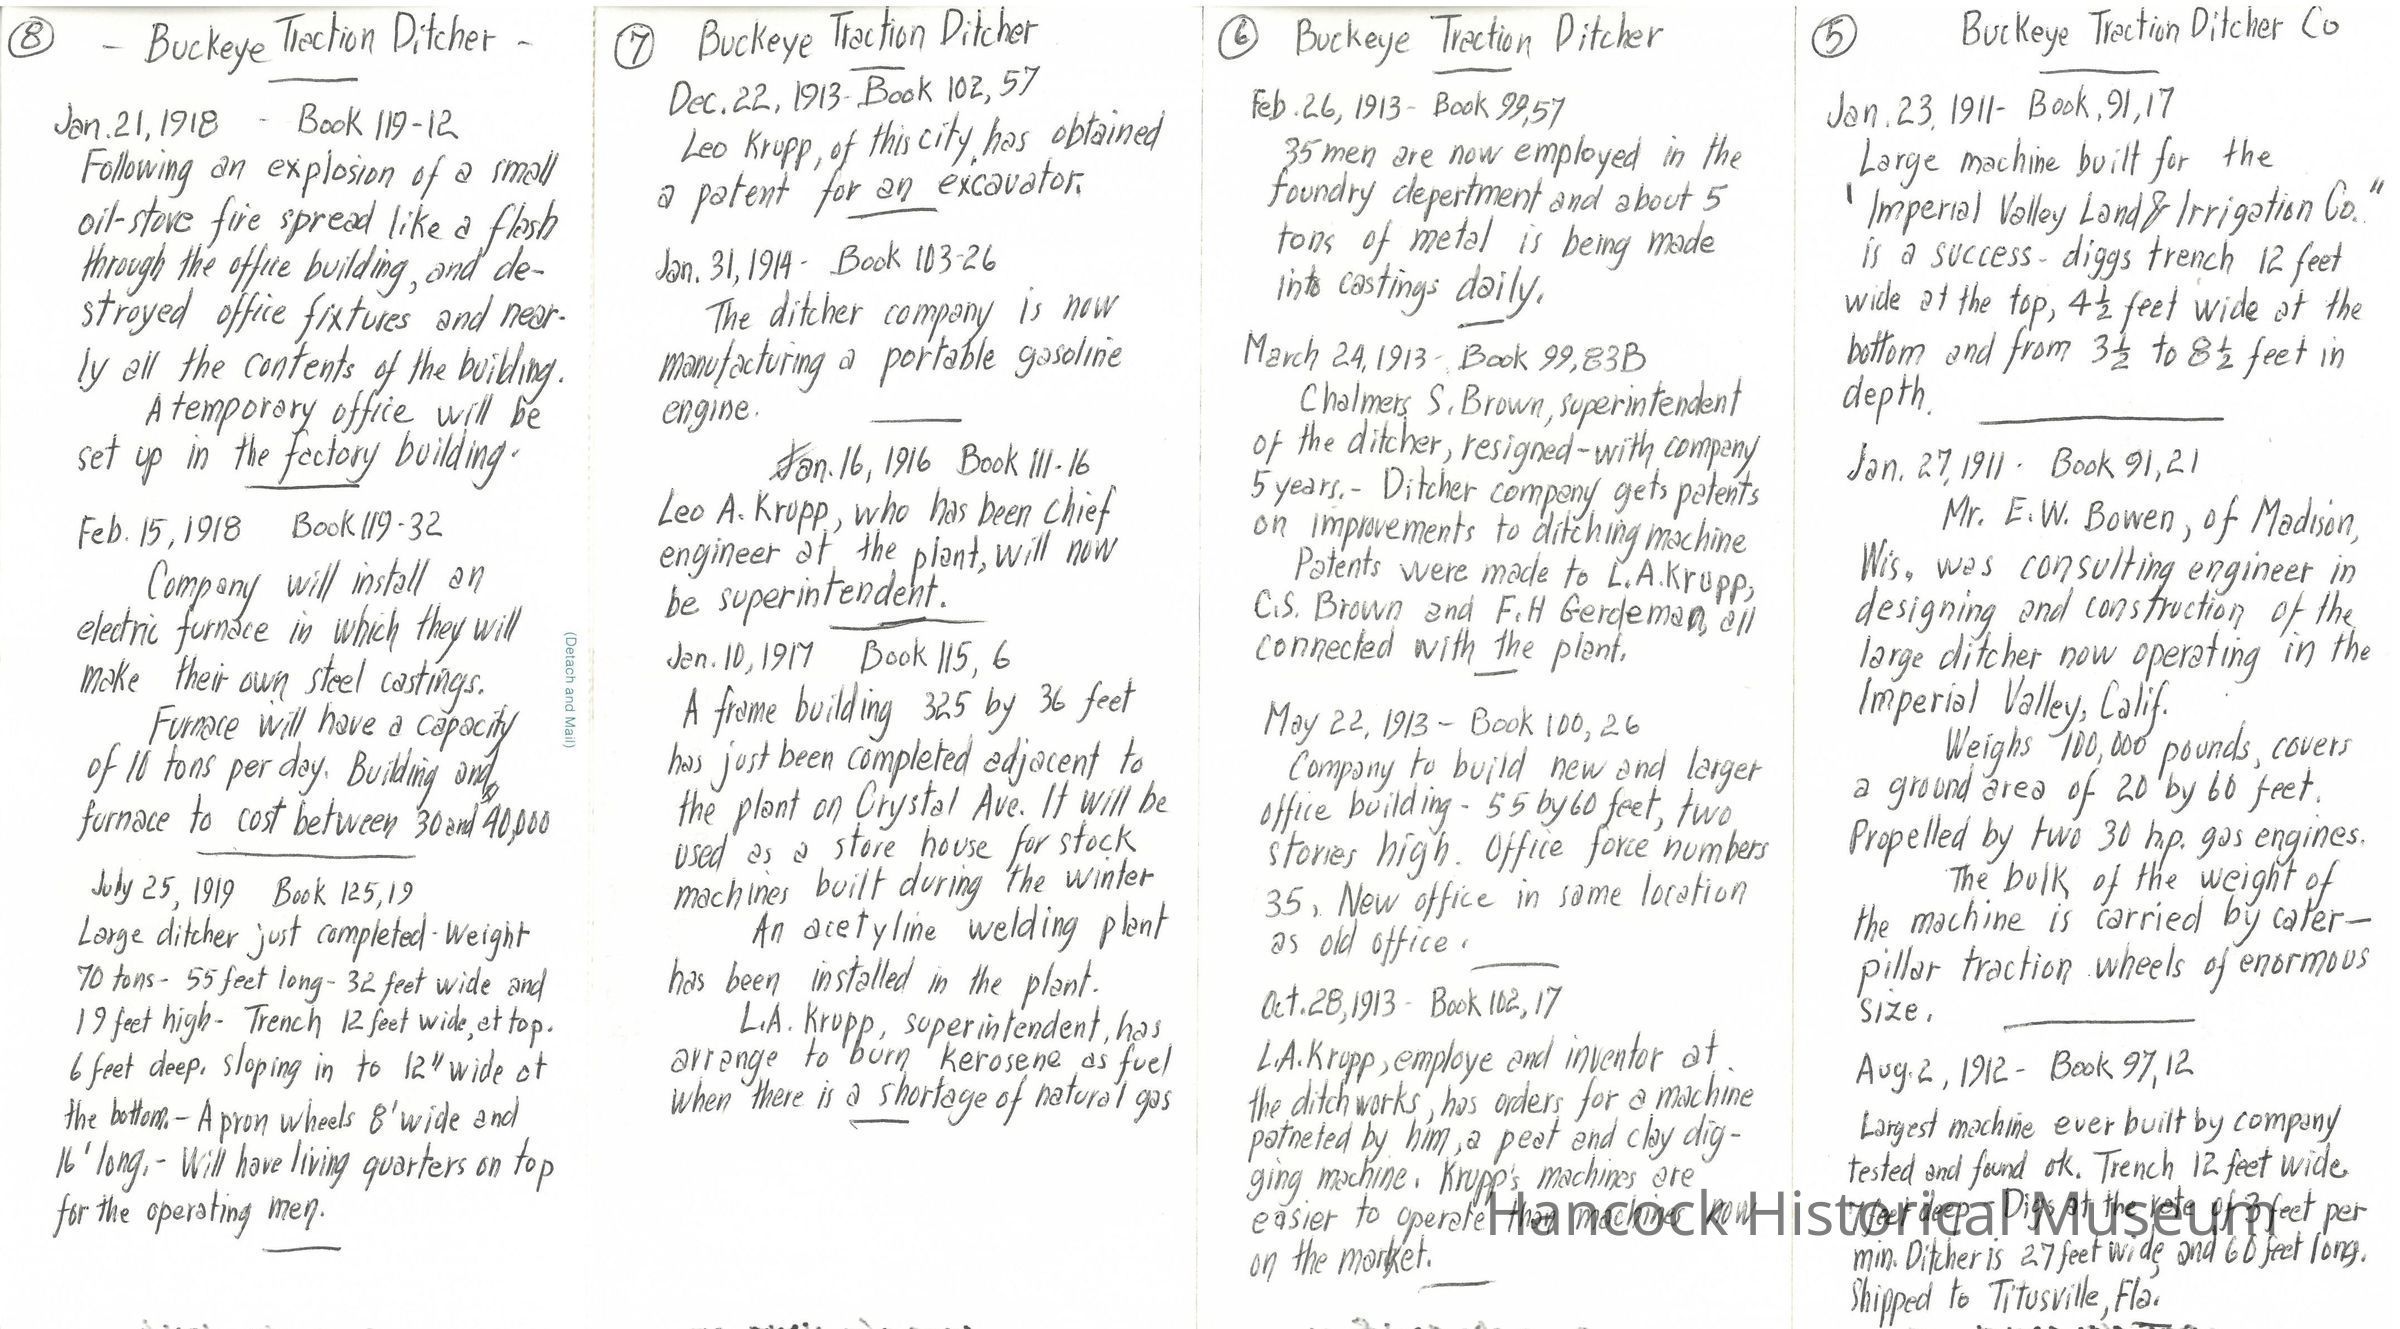 ⑧ - Buckeye Traction Ditcher -
Jan. 21, 1918 - Book 119-12
Following an explosion of a small
oil-stove fire spread like a flash
through the office building, and de-
stroyed office fixtures and near-
ly all the contents of the building.
A temporary office will be
set up in the factory building.
Feb. 15, 1918 Book 119-32
Company will install an
electric furnace in which they will
make their own steel castings.
Furnace will have a capacity
of 10 tons per day. Building and
furnace to cost between 30 and $40,000
July 25, 1919 Book 125, 19
Large ditcher just completed - Weight
70 tons - 55 feet long - 32 feet wide and
19 feet high - Trench 12 feet wide, at top.
6 feet deep. sloping in to 12" wide at
the bottom. - Apron wheels 8' wide and
16' long. - Will have living quarters on top
for the operating men.
(Detach and Mail)
⑦ Buckeye Traction Ditcher
Dec. 22, 1913 - Book 102, 57
Leo Krupp, of this city, has obtained
a patent for an excavator.
Jan. 31, 1914 - Book 103-26
The ditcher company is now
manufacturing a portable gasoline
engine.
Jan. 16, 1916 Book 111-16
Leo A. Krupp, who has been chief
engineer at the plant, will now
be superintendent.
Jan. 10, 1917 Book 115, 6
A frame building 325 by 36 feet
has just been completed adjacent to
the plant on Crystal Ave. It will be
used as a store house for stock
machines built during the winter
An acetyline welding plant
has been installed in the plant.
L.A. Krupp, superintendent, has
arrange to burn kerosene as fuel
when there is a shortage of natural gas
⑥ Buckeye Traction Ditcher
Feb. 26, 1913 - Book 99, 57
35 men are now employed in the
foundry depertment and about 5
tons of metal is being made
into castings daily.
March 24, 1913 - Book 99, 83B
Chalmers S. Brown, superintendent
of the ditcher, resigned - with company
5 years. - Ditcher company gets patents
on improvements to ditching machine
Patents were made to L.A. Krupp,
C.S. Brown and F.H Gerdeman, all
connected with the plant.
May 22, 1913 - Book 100, 26
Company to build new and larger
office building - 55 by 60 feet, two
stories high. Office force numbers
35. New office in same location
as old office.
Oct. 28, 1913 - Book 102, 17
L.A. Krupp, employe and inventor at
the ditch works, has orders for a machine
patneted by him, a peat and clay dig-
ging machine. Krupp's machines are
easier to operate than machines now
on the market.
⑤ Buckeye Traction Ditcher Co
Jan. 23, 1911 - Book, 91, 17
Large machine built for the
'Imperial Valley Land & Irrigation Co."
is a success - diggs trench 12 feet
wide at the top, 4½ feet wide at the
bottom and from 3½ to 8½ feet in
depth.
Jan. 27, 1911 - Book 91, 21
Mr. E.W. Bowen, of Madison,
Wis. was consulting engineer in
designing and construction of the
large ditcher now operating in the
Imperial Valley, Calif.
Weighs 100,000 pounds, covers
a ground area of 20 by 60 feet.
Propelled by two 30 h.p. gas engines.
The bulk of the weight of
the machine is carried by cater-
pillar traction wheels of enormous
size.
Aug. 2, 1912 - Book 97, 12
Largest machine ever built by company
tested and found ok. Trench 12 feet wide
feet deep - Digs at the rate of 3 feet per
min. Ditcher is 27 feet wide and 60 feet long.
Shipped to Titusville, Fla.
Hancock Historical Museum